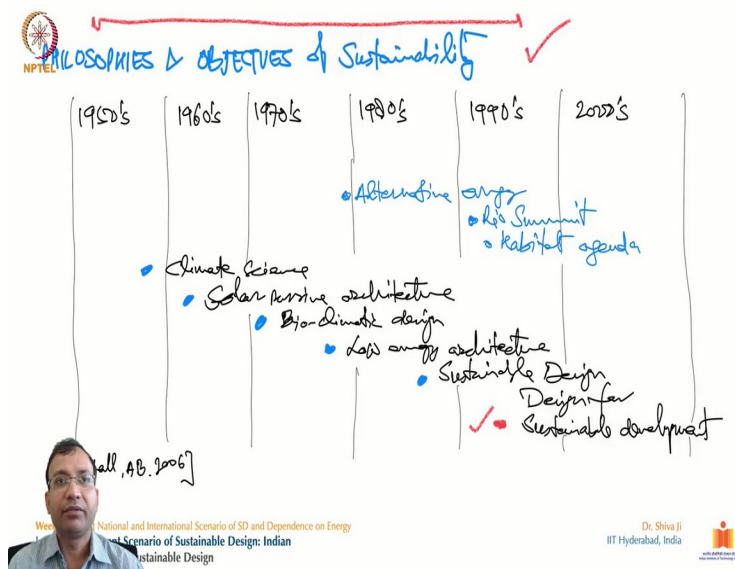 NPTEL
PHILOSOPHIES & OBJECTIVES of Sustainability
1950's 1960's 1970's 1980's 1990's 2000's
• Alternative energy
• Rio Summit
• Habitat agenda
• Climate Science
• Solar passive architecture
• Bio-climatic design
• Low energy architecture
• Sustainable Design
Design for
• Sustainable development
all, AB. 2006]
Wee National and International Scenario of SD and Dependence on Energy
nt Scenario of Sustainable Design: Indian
ustainable Design
Dr. Shiva Ji
IIT Hyderabad, India